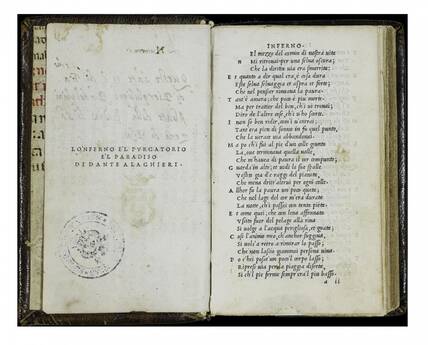 LO'NFERNO E'L PVRGATORIO
E'L PARADISO
DE DANTE ALAGHIERI.
INFERNO.
El mezzo del camin di nostra vita
N Mi ritrovai per una selva oscura;
Che la diritta via era smarrita:
E t quanto a dir qual era, è cosa dura
Esta selva selvaggia et aspra et forte;
Che nel pensier rinnova la paura.
T ant'è amara; che poco è piu morte.
Ma per trattar del ben, ch'i vi trovai;
Diro de l'altre cose, ch'i v'ho scorte.
I non so ben ridir, com'i v'entrai;
Tant'era pien di sonno in su quel punto,
Che la verace via abbandonai.
M a po ch'i fui al pie d'un colle giunto
La, ove terminava quella valle,
Che m'havea di paura il cor compunto;
G uarda'in alto; et vidi le sue spalle
Vestite gia de raggi del pianeta,
Che mena dritt'altrui per ogni calle.
A llhor fu la paura un poco queta;
Che nel lago del cor m'era durata
La notte, ch'i passai con tanta pieta.
E t come quei; che con lena affannata
Uscito fuor del pelago alla riva
Si volge a l'acqua perigliosa, et guata;
C osi l'animo mio, ch'anchor fuggiva,
Si vols'a retro a rimirar lo passo;
Che non lascio giamai persona viva.
P o c'hei posat'un poco'l corpo lasso;
Ripresi via per la piaggia diserta,
Si ch'l pie fermo sempr'era'l piu basso.
a ii